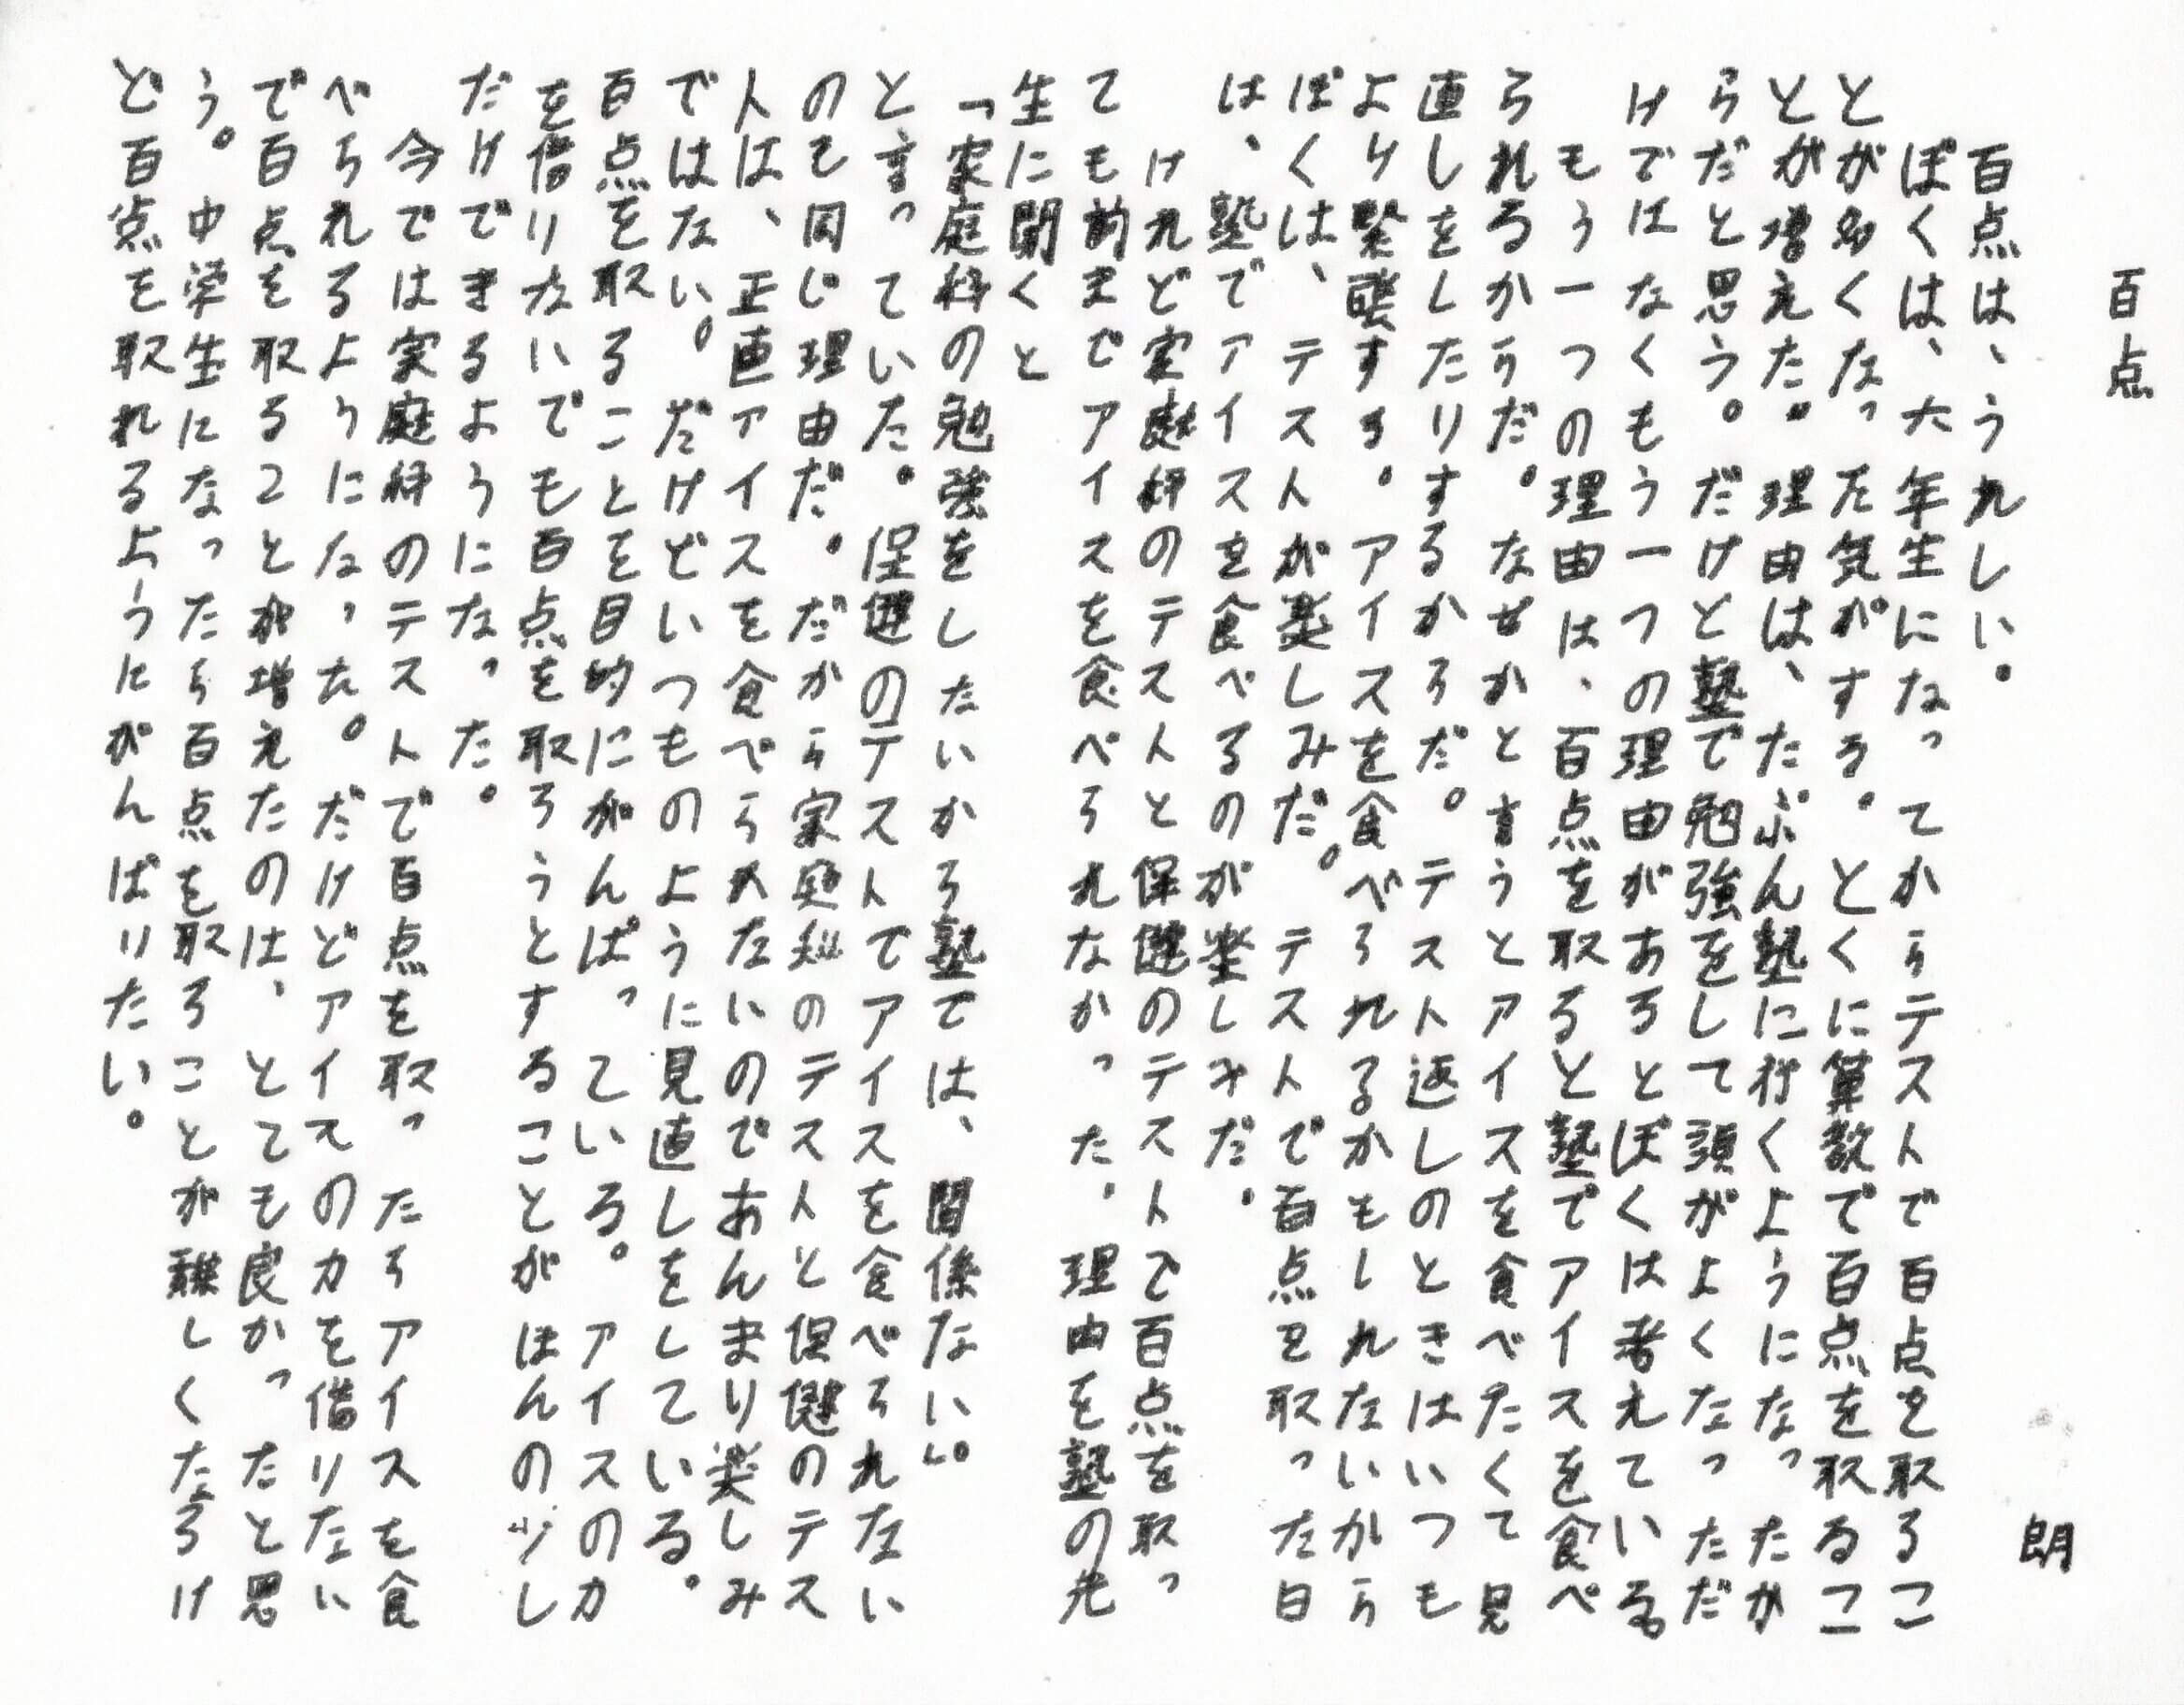 百点
朗
百点は、うれしい。
ぼくは、六年生になってからテストで百点を取るこ
とが多くなった気がする。とくに算数で百点を取るこ
とが増えた。理由は、たぶん塾に行くようになったか
らだと思う。だけど塾で勉強をして頭がよくなっただ
けではなくもう一つの理由があるとぼくは考えている
もう一つの理由は、百点を取ると塾でアイスを食べ
られるからだ。なぜかと言うとアイスを食べたくて見
直しをしたりするからだ。テスト返しのときはいつも
より緊張する。アイスを食べられるかもしれないから
ぼくは、テストが楽しみだ。テストで百点を取った日
は、塾でアイスを食べるのが楽しみだ。
けれど家庭科のテストと保健のテストで百点を取っ
ても前までアイスを食べられなかった。理由を塾の先
生に聞くと
「家庭科の勉強をしたいから塾では、関係ない。」
と言っていた。保健のテストでアイスを食べれない
のも同じ理由だ。だから家庭科のテストと保健のテス
トは、正直アイスを食べられないのであんまり楽しみ
ではない。だけどいつものように見直しをしている。
百点を取ることを目的にがんばっている。アイスの力
を借りないでも百点を取ろうとすることがほんの少し
だけできるようになった。
今では家庭科のテストで百点を取ったらアイスを食
べられるようになった。だけどアイスの力を借りない
で百点を取ることが増えたのは、とても良かったと思
う。中学生になったら百点を取ることが難しくなるけ
ど百点を取れるようにがんばりたい。